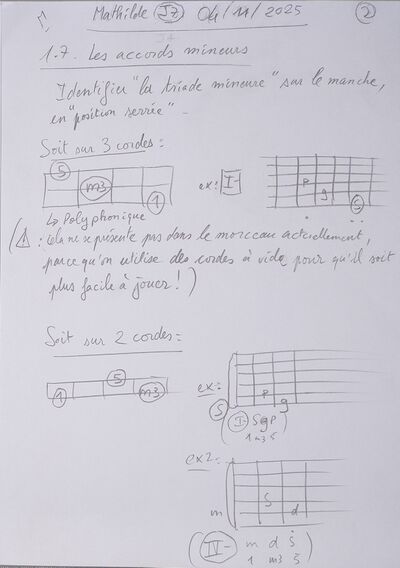 Mathilde J7 04/11/2025 2
1.7. Les accords mineurs
Identifier "la triade mineure" sur le manche,
en "position serrée".
Soit sur 3 cordes:
5 m3 1
ex: I-
P g S
↳ Polyphonique
(⚠: Cela ne se présente pas dans le morceau actuellement,
parce qu'on utilise des cordes à vide pour qu'il soit
plus facile à jouer!)
Soit sur 2 cordes:
1 5 m3
ex:
P
S g
(I- S g P
1 m3 5)
ex2:
S
m d
(IV- m d S
1 m3 5)